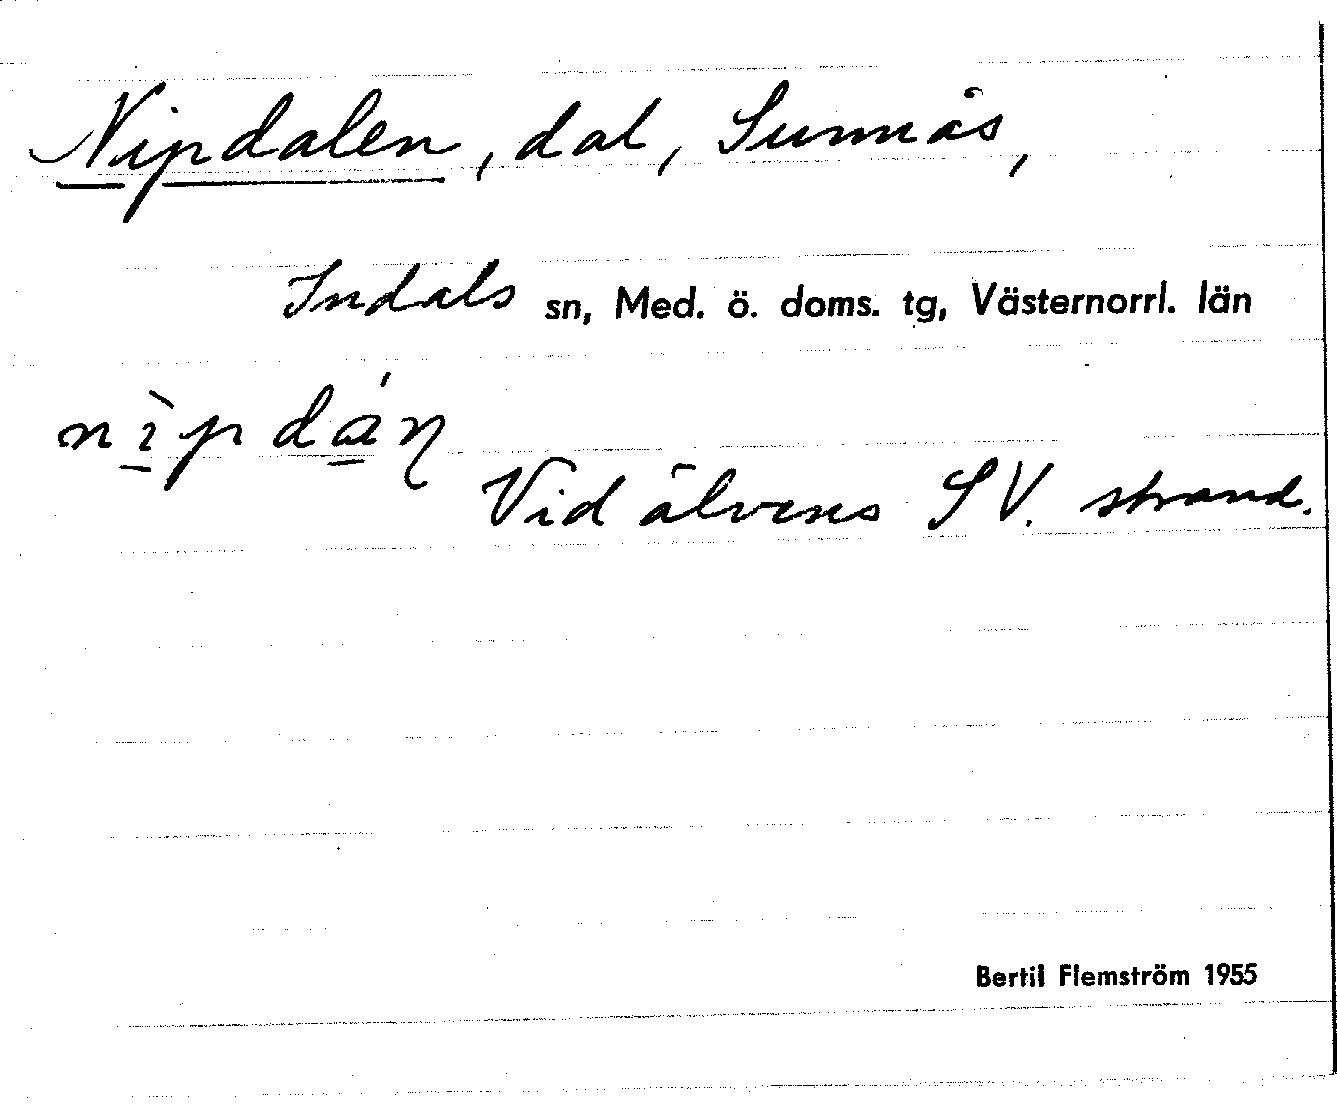 Nipdalen, dal, Sunnås,
Indals sn, Med. ö. doms. tg, Västernorrl. län
nìpdáŋ
Vid älvens SV. strand.
Bertil Flemström 1955